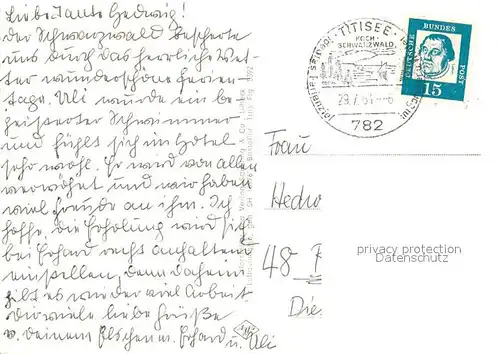 Liebe Tante Hedwig!
Der Schwarzwald bescherte
uns durch das herrliche Wet-
ter wunderschöne Ferien-
tage. Uli wurde ein be-
geisterter Schwimmer
und fühlt sich im Hotel
sehr wohl. Er wird von allen
verwöhnt und wir haben
viel Freude an ihm. Ich
hoffe, die Erholung wird sich
bei Erhard recht anhaltend
einstellen, denn daheim
gilt es wieder viel Arbeit
Dir viele liebe Grüße
v. Deinem Elschen m. Erhard u. Uli
TITISEE
HOCH-
SCHWARZWALD
782
DEUTSCHE
BUNDES
POST
15
Frau
Hedw
48
Die
privacy protection
Datenschutz